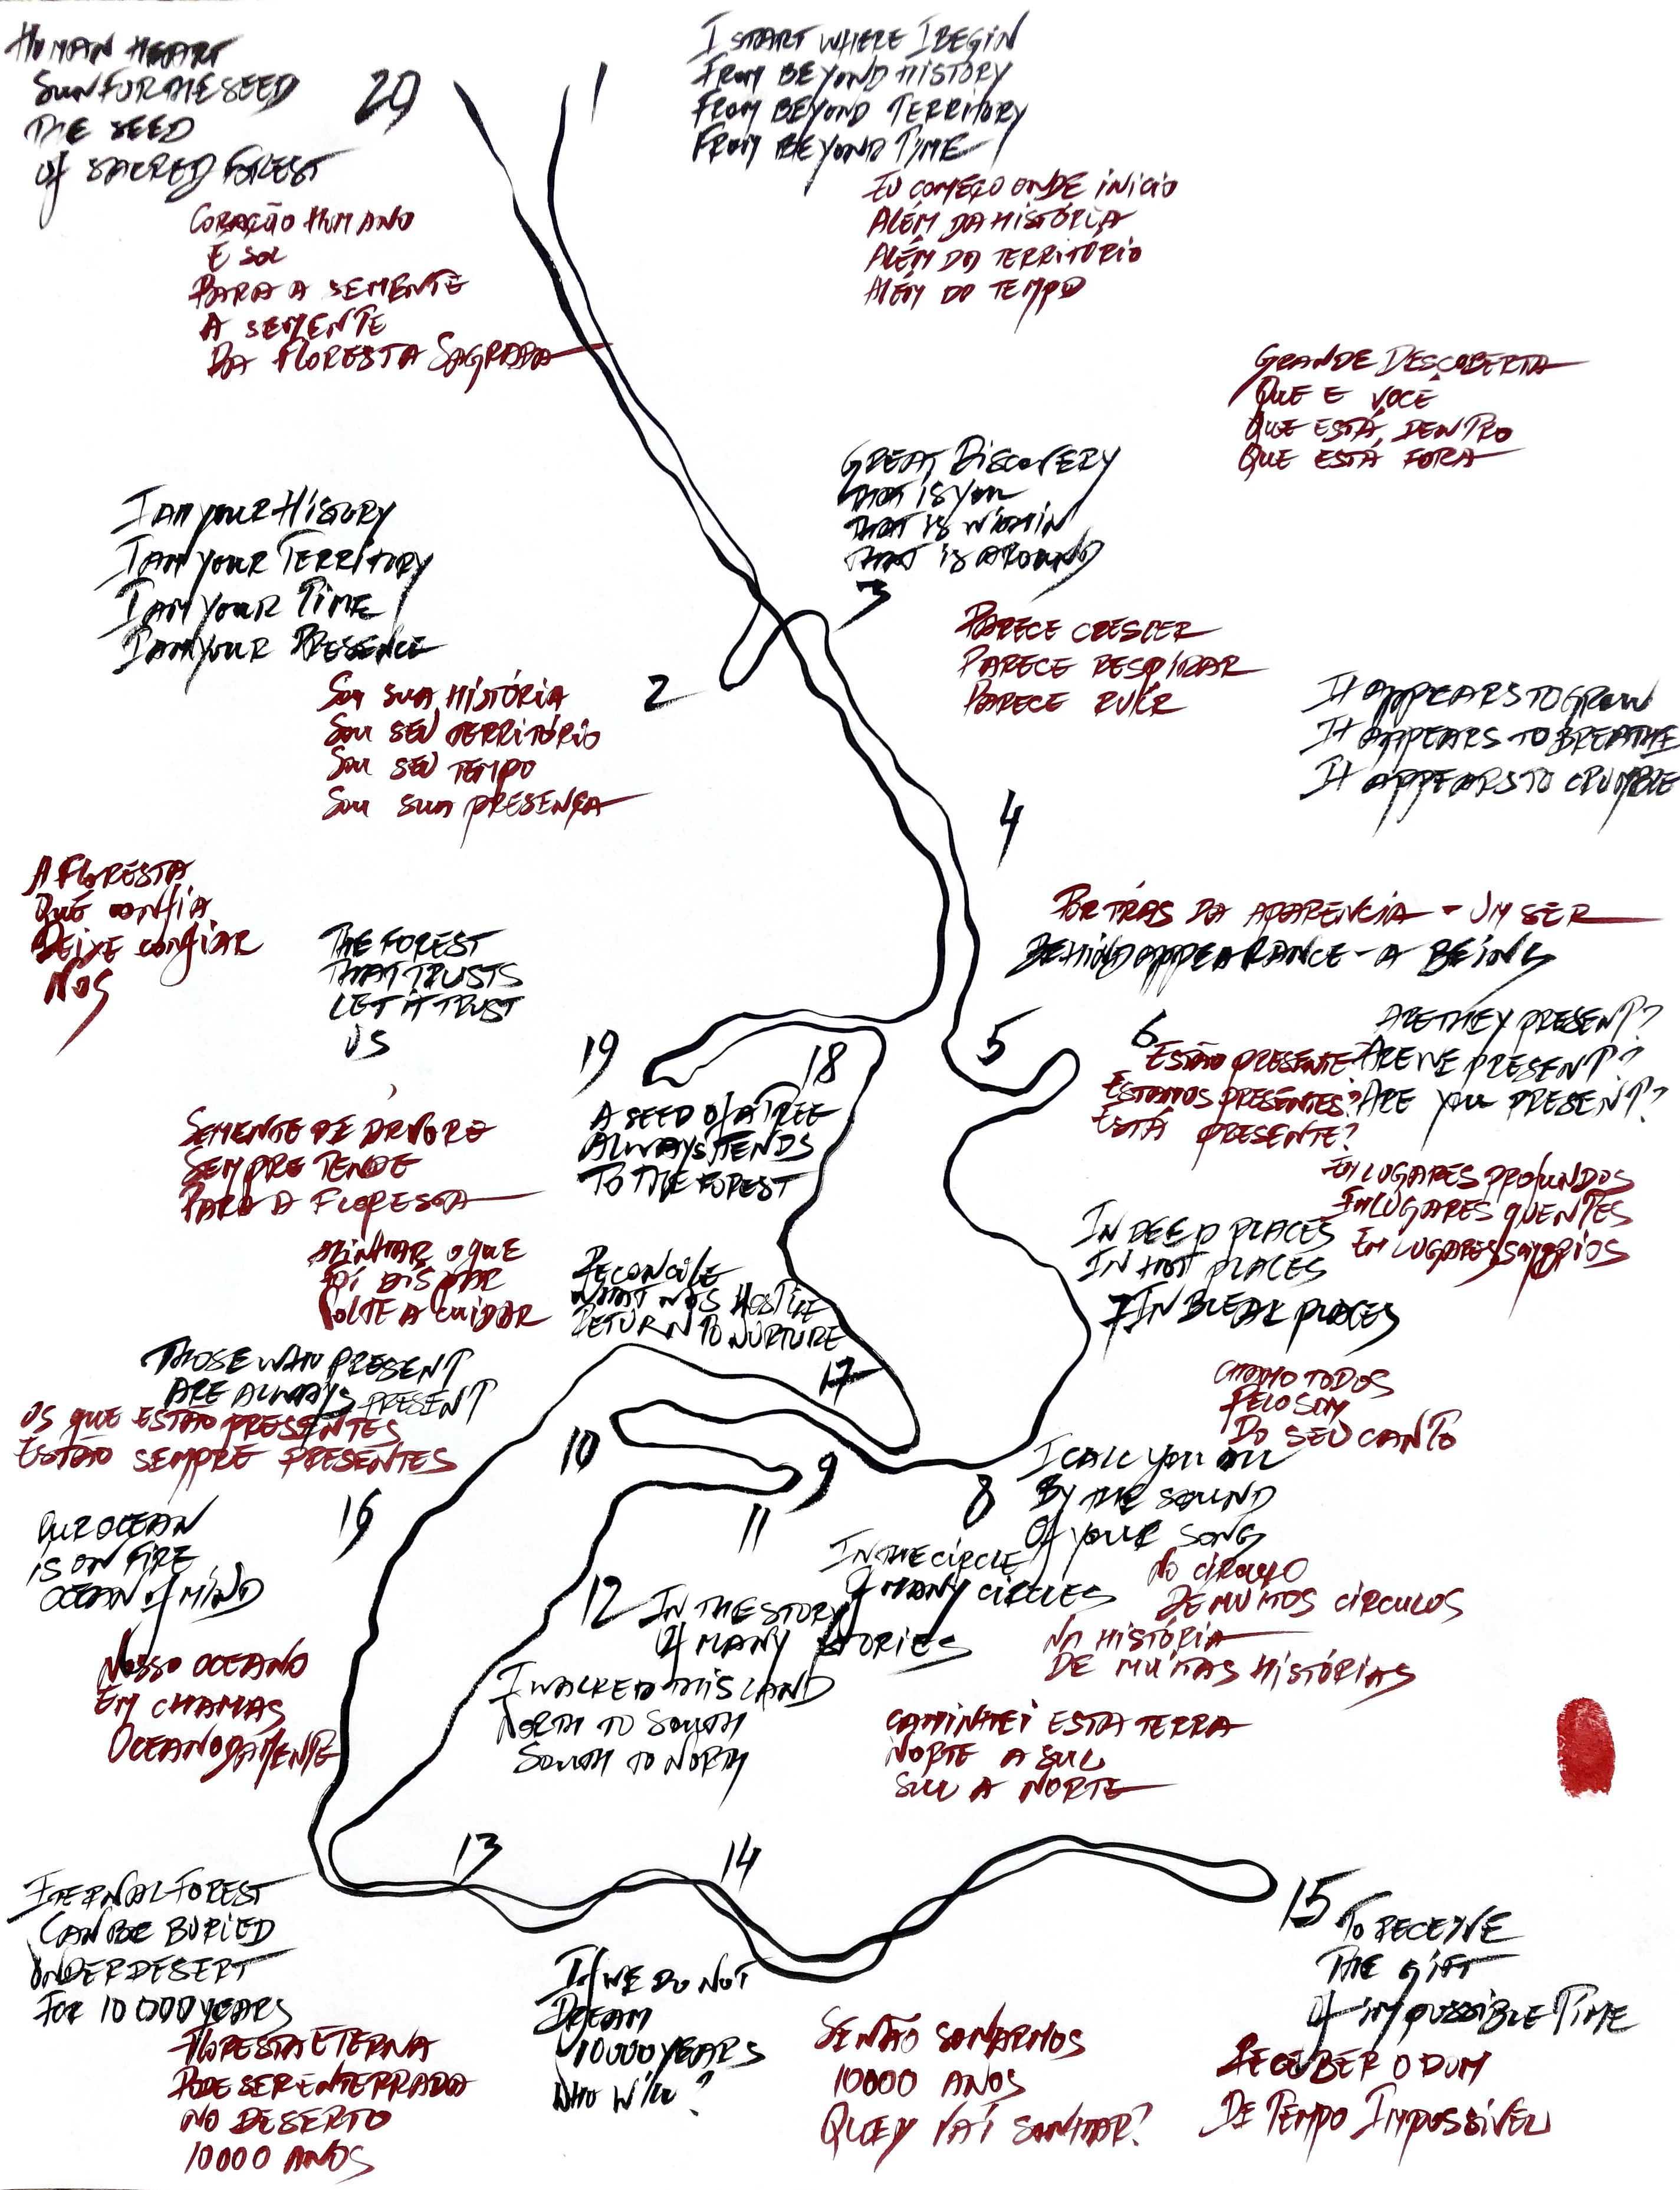 HUMAN HEART
SUN FOR THE SEED
THE SEED
Of SACRED FOREST
20
CORAÇÃO HUMANO
É SOL
PARA A SEMENTE
A SEMENTE
DA FLORESTA SAGRADA
1
I START WHERE I BEGIN
FROM BEYOND HISTORY
FROM BEYOND TERRITORY
FROM BEYOND TIME
EU COMEÇO ONDE INICIO
ALÉM DA HISTÓRIA
ALÉM DO TERRITÓRIO
ALÉM DO TEMPO
I AM YOUR HISTORY
I AM YOUR TERRITORY
I AM YOUR TIME
I AM YOUR PRESENCE
2
SOU SUA HISTÓRIA
SOU SEU TERRITÓRIO
SOU SEU TEMPO
SOU SUA PRESENÇA
GRANDE DESCOBERTA
QUE E VOCÊ
QUE ESTÁ DENTRO
QUE ESTÁ FORA
GREAT DISCOVERY
THAT IS YOU
THAT IS WITHIN
THAT IS AROUND
3
PARECE CRESCER
PARECE RESPIRAR
PARECE RUIR
IT APPEARS TO GROW
IT APPEARS TO BREATHE
IT APPEARS TO CRUMBLE
4
POR TRÁS DA APARENCIA - UM SER
BEHIND APPEARANCE - A BEING
5
6
ARE THEY PRESENT?
ARE WE PRESENT?
ARE YOU PRESENT?
ESTÃO PRESENTE?
ESTAMOS PRESENTES?
ESTÁ PRESENTE?
EM LUGARES PROFUNDOS
EM LUGARES QUENTES
EM LUGARES SOMBRIOS
IN DEEP PLACES
IN HOT PLACES
7 IN BLEAK PLACES
CHAMO TODOS
PELO SOM
DO SEU CANTO
8
I CALL YOU ALL
BY THE SOUND
Of YOUR SONG
9
10
11
IN THE CIRCLE
Of MANY CIRCLES
NO CIRCULO
DE MUITOS CÍRCULOS
12
IN THE STORY
Of MANY STORIES
NA HISTÓRIA
DE MUITAS HISTÓRIAS
I WALKED THIS LAND
NORTH TO SOUTH
SOUTH TO NORTH
CAMINHEI ESTA TERRA
NORTE A SUL
SUL A NORTE
13
ETERNAL FOREST
CAN BE BURIED
UNDER DESERT
FOR 10 000 YEARS
FLORESTA ETERNA
PODE SER ENTERRADA
NO DESERTO
10000 ANOS
14
If WE DO NOT
DREAM
10000 YEARS
WHO WILL?
SE NÃO SONHARMOS
10000 ANOS
QUEM VAI SONHAR?
15
TO RECEIVE
THE GIFT
Of IMPOSSIBLE TIME
RECEBER O DOM
DE TEMPO IMPOSSÍVEL
16
OUR OCEAN
IS ON FIRE
OCEAN of MIND
NOSSO OCEANO
EM CHAMAS
OCEANO DA MENTE
THOSE WHO PRESENT
ARE ALWAYS PRESENT
OS QUE ESTÃO PRESENTES
ESTÃO SEMPRE PRESENTES
17
RECONCILE
WHAT WAS HOSTILE
RETURN TO NURTURE
FOI
VOLTE A CUIDAR
18
A SEED Of A TREE
ALWAYS TENDS
TO THE FOREST
SEMENTE DE ARVORE
SEMPRE TENDE
PARA A FLORESTA
19
THE FOREST
THAT TRUSTS
LET IT TRUST
US
A FLORESTA
QUE CONFIA
DEIXE CONFIAR
NOS